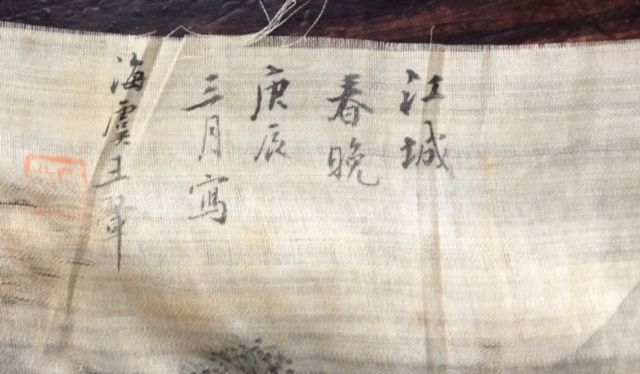 江城
春晚
庚辰
三月寫
海虞王翬